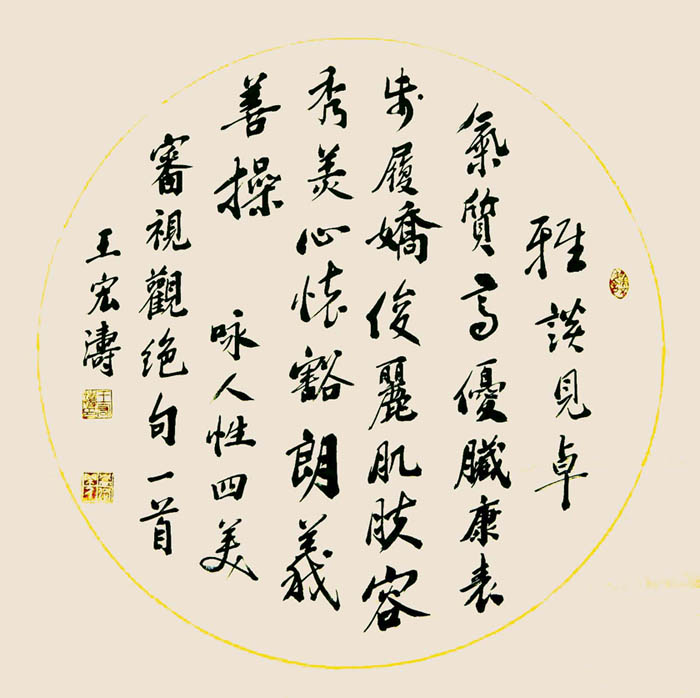 雅談見卓
氣質高優臟康表
步履嬌俊麗肌肤容
秀美心懷豁朗義
善操 咏人性四美
審視觀绝句一首
王宏濤